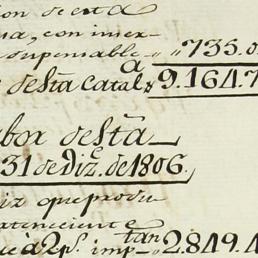 ion de esta
na, con iner-
dispensable „ 735. 0
desta Catala 9.164.7
abor desta
31 de Diz.e de 1806.
iz que produ
atenciente
e à 2 p.s imp.tan 2.849.4